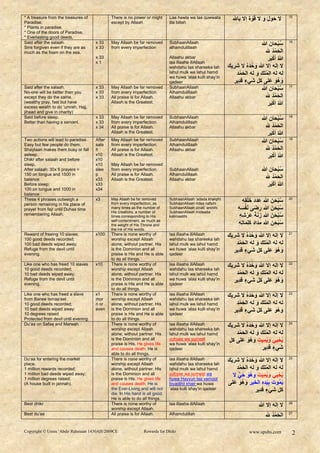 * A treasure from the treasures of
Paradise.
* Plants in paradise.
* One of the doors of Paradise.
* Everlasting good deeds.
There is no power or might
except by Allaah
Laa hawla wa laa quwwata
illa billah
لا حول ولا قوة إلا بالله
15
Said after the salaah.
Sins forgiven even if they are as
much as the foam on the sea.
x 33
x 33
x 33
x 1
May Allaah be far removed
from every imperfection
Subhaanallaah
alhamdulillaah
Allaahu akbar
laa illaaha illAllaah
wahdahu laa shareeka lah
lahul mulk wa lahul hamd
wa huwa 'alaa kulli shay'in
qadeer
سبحان الله
الحمد لله
الله أكبر
لا إله إلا الله وحدهُ لا شريك
له له الملك و له الحمد
وهو على كل شيء قدير
16
Said after the salaah.
No-one will be better then you
except they do the same.
(wealthy pray, fast but have
excess wealth to do 'umrah, Hajj,
jihaad and give in charity)
x 33
x 33
x 33
May Allaah be far removed
from every imperfection.
All praise is for Allaah.
Allaah is the Greatest.
Subhaanallaah
Alhamdulillaah
Allaahu akbar
سبحان الله
الحمد لله
الله أكبر
17
Said before sleep.
Better than having a servant.
x 33
x 33
x 34
May Allaah be far removed
from every imperfection.
All praise is for Allaah.
Allaah is the Greatest.
Subhaanallaah
Alhamdulillaah
Allaahu akbar
سبحان الله
الحمد لله
الله أكبر
18
Two actions will lead to paradise.
Easy but few people do them.
Shaytaan makes them busy or fall
asleep.
Dhikr after salaah and before
sleep
After salaah: 30x's prayers =
150 on tongue and 1500 in
balance
Before sleep:
100 on tongue and 1000 in
balance
May Allaah be far removed
from every imperfection.
All praise is for Allaah.
Allaah is the Greatest.
Subhaanallaah
Alhamdulillaah
Allaahu akbar
سبحان الله
الحمد لله
الله أكبر
19
These 4 phrases outweigh a
person remaining in his place of
prayer from fajr until Duhaa time
remembering Allaah.
x3
May Allaah be far removed
from every imperfection, as
many times as the number of
His creations, a number of
times corresponding to His
self-contentment, as much as
the weight of His Throne and
the ink of His words.
SubhaanAllaah 'adada khalqihi
SubhaanAllaah ridaa nafsihi
SubhaanAllaah zinati 'arshihi
SubhaanAllaah midaada
kalimaatihi
سبحان الله عدد خلقه
سبحان الله رضى نفسه
سبحان الله زنة عرشه
سبحان الله مداد كلماته
20
Reward of freeing 10 slaves.
100 good deeds recorded;
100 bad deeds wiped away.
Refuge from the devil until
evening.
x100
There is none worthy of
worship except Allaah
alone, without partner. His
is the Dominion and all
praise is His and He is able
to do all things.
laa illaaha illAllaah
wahdahu laa shareeka lah
lahul mulk wa lahul hamd
wa huwa 'alaa kulli shay'in
qadeer
لا إله إلا الله وحدهُ لا شريك
له له الملك و له الحمد
وهو على كل شيء قدير
21
Like one who has freed 10 slaves
10 good deeds recorded;
10 bad deeds wiped away.
Refuge from the devil until
evening.
x10
There is none worthy of
worship except Allaah
alone, without partner. His
is the Dominion and all
praise is His and He is able
to do all things.
laa illaaha illAllaah
wahdahu laa shareeka lah
lahul mulk wa lahul hamd
wa huwa 'alaa kulli shay'in
qadeer
لا إله إلا الله وحدهُ لا شريك
له له الملك و له الحمد
وهو على كل شيء قدير
22
Like one who has freed a slave
from Banee Ismaa'eel.
10 good deeds recorded;
10 bad deeds wiped away
10 degrees raised.
Protected from devil until evening.
There is none worthy of
worship except Allaah
alone, without partner. His
is the Dominion and all
praise is His and He is able
to do all things.
laa illaaha illAllaah
wahdahu laa shareeka lah
lahul mulk wa lahul hamd
wa huwa 'alaa kulli shay'in
qadeer
لا إله إلا الله وحدهُ لا شريك
له له الملك و له الحمد
وهو على كل شيء قدير
23
Du'aa on Safaa and Marwah.
There is none worthy of
worship except Allaah
alone, without partner. His
is the Dominion and all
praise is His. He gives life
and causes death. He is
able to do all things.
laa illaaha illAllaah
wahdahu laa shareeka lah
lahul mulk wa lahul hamd
yuhyee wa yumeet
wa huwa 'alaa kulli shay'in
qadeer
لا إله إلا الله وحدهُ لا شريك
له له الملك و له الحمد
يحيي ويميت وهو على كل
شيء قدير
24
Du'aa for entering the market
place.
1 million rewards recorded;
1 million bad deeds wiped away.
1 million degrees raised.
(A house built in jannah).
There is none worthy of
worship except Allaah
alone, without partner. His
is the Dominion and all
praise is His. He gives life
and causes death. He is
the Ever-Living and will not
die. In His hand is all good.
He is able to do all things.
laa illaaha illAllaah
wahdahu laa shareeka lah
lahul mulk wa lahul hamd
yuhyee wa yumeet wa
huwa Hayyun laa yamoot
biyadihil khair wa huwa
'alaa kulli shay'in qadeer
لا إله إلا الله وحدهُ لا شريك
له له الملك و له الحمد
يحيي ويميت وهو حيٌّ لا
يموت بيده الخير وهو على
كل شيء قدير
25
Best dhikr
There is none worthy of
worship except Allaah.
laa illaaha illAllaah
لا إله إلا الله
26
Best du'aa
All praise is for Allaah.
Alhamdulillah
الحمد لله
27
Copyright © Umm 'Abdir Rahmaan 1430AH/2009CE
Rewards for Dhikr
www.spubs.com
2